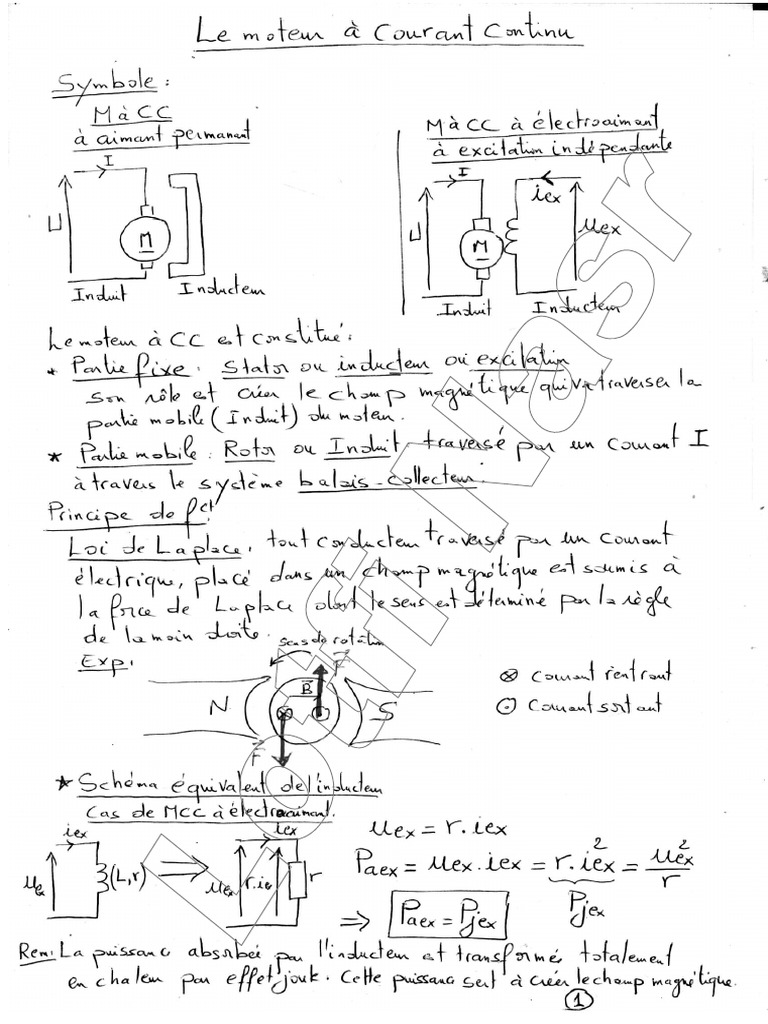 Le moteur à Courant Continu
Symbole :
M à CC
à aimant permanant
I
U
M
Induit
Inducteur
M à CC à électroaimant
à excitation indépendante
I
iex
U
M
uex
Induit
Inducteur
Le moteur à CC est constitué :
* Partie fixe : Stator ou inducteur ou excitation
son rôle est créer le champ magnétique qui va traverser la
partie mobile (Induit) du moteur.
* Partie mobile : Rotor ou Induit traversé par un courant I
à travers le système balais-collecteur.
Principe de fct
Loi de Laplace : tout conducteur traversé par un courant
électrique, placé dans un champ magnétique est soumis à
la force de Laplace dont le sens est déterminé par la règle
de la main droite.
Exp :
sens de rotation
F
B
N
S
F
⊗ courant rentrant
⊙ Courant sortant
* Schéma équivalent de l'inducteur
Cas de MCC à électroaimant.
iex
uex
(L,r)
⇒
iex
uex
r.iex
r
uex = r.iex
Paex = uex.iex = r.iex² = uex²/r
Pjex
⇒ Paex = Pjex
Rem : La puissance absorbée par l'inducteur est transformé totalement
en chaleur par effet joule. Cette puissance sert à créer le champ magnétique.
1